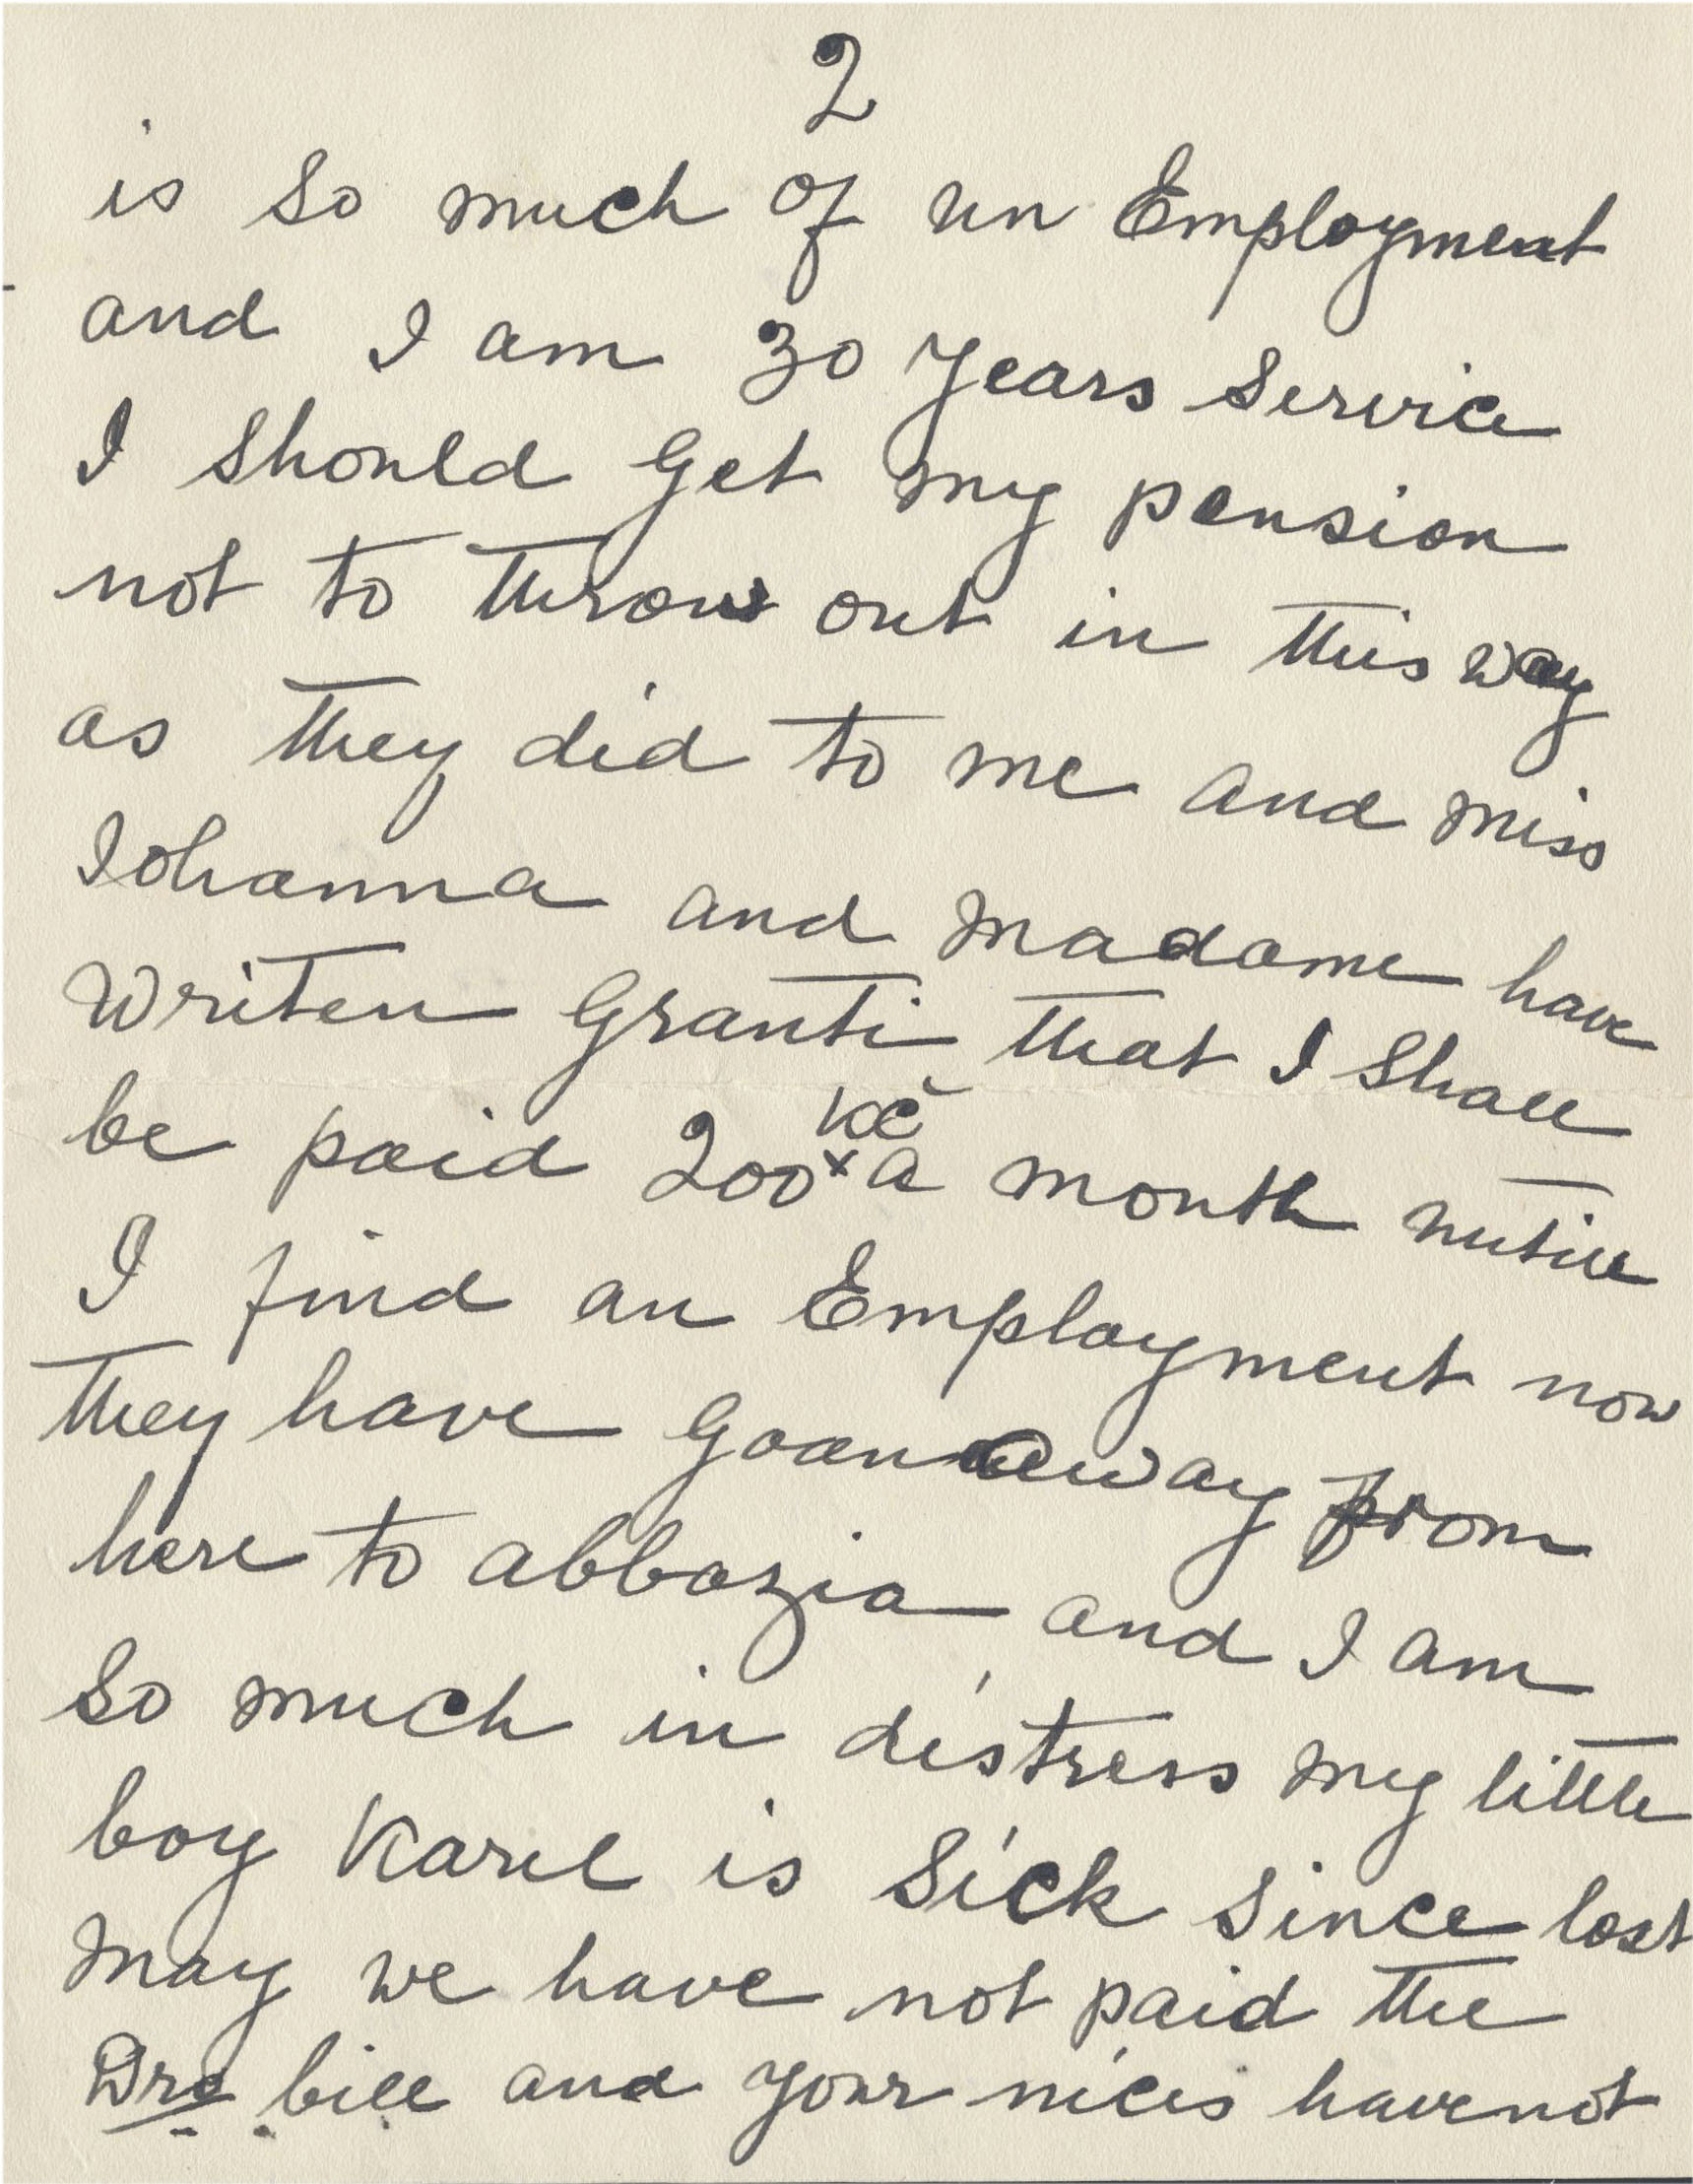 2
is so much of un Employment
and I am 30 years service
I should get my pension
not to throw out in this way
as they did to me and miss
Iohanna and madame have
writen Granti that I shall
be paid 200 Kč a month until
I find an Employment now
they have goan away from
here to abbazia and I am
so much in distress my little
boy Karel is sick since last
may we have not paid the
Drs bill and your nices have not